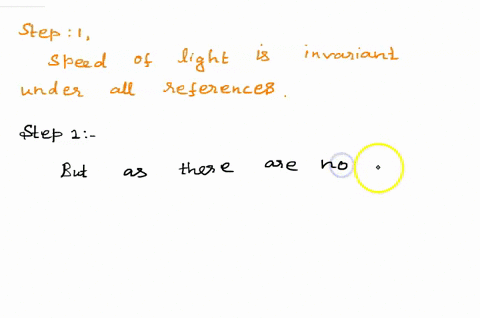 Step: 1,
Speed of light is invariant
under all references.
Step 2:-
But as there are no